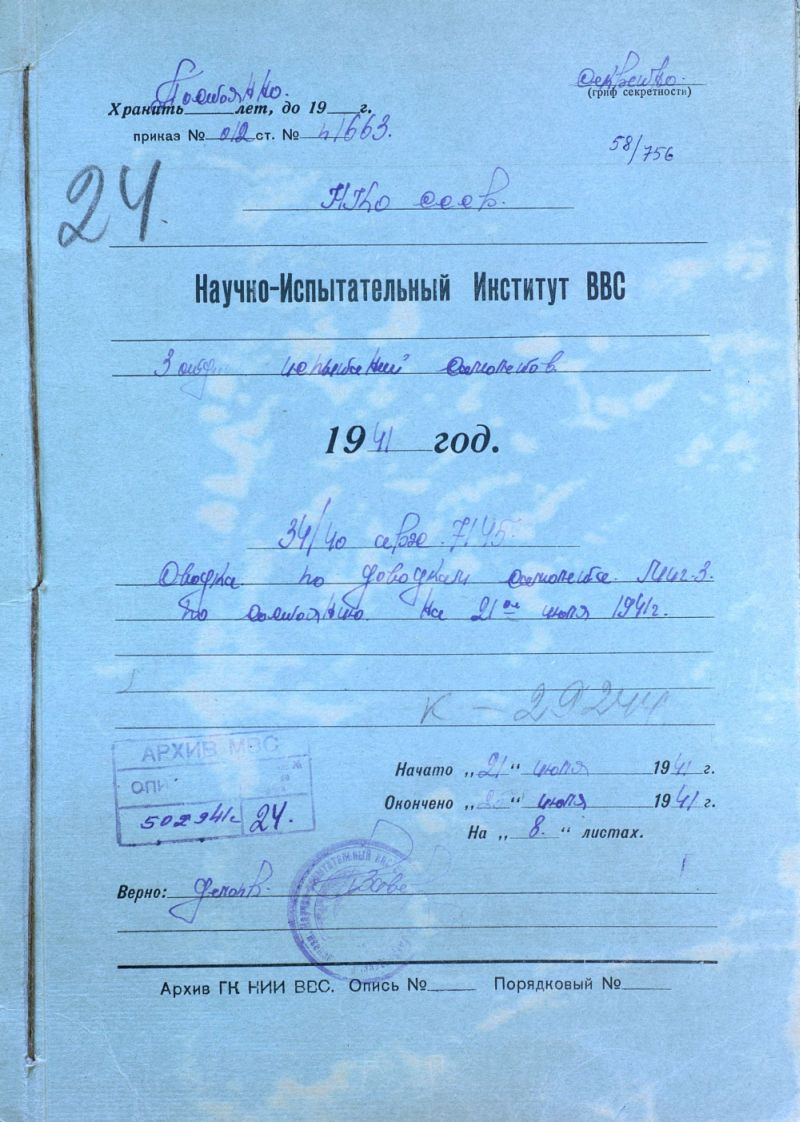 Постоянно.
Хранить лет, до 19 г.
приказ № 012 ст. № 663.
секретно.
(гриф секретности)
58/756
24.
НКО ссср.
Научно-Испытательный Институт ВВС
3 испытаний самолетов
1941 год.
34/40
Сводка по доводкам самолета Миг-3.
по состоянию на 21 июля 1941г.
к - 29244
АРХИВ МВС
ОПИ
502941с 24.
Начато „21“ июля 1941 г.
Окончено „ “ июля 1941 г.
На „8.“ листах.
Верно:
Архив ГК НИИ ВВС. Опись № Порядковый №